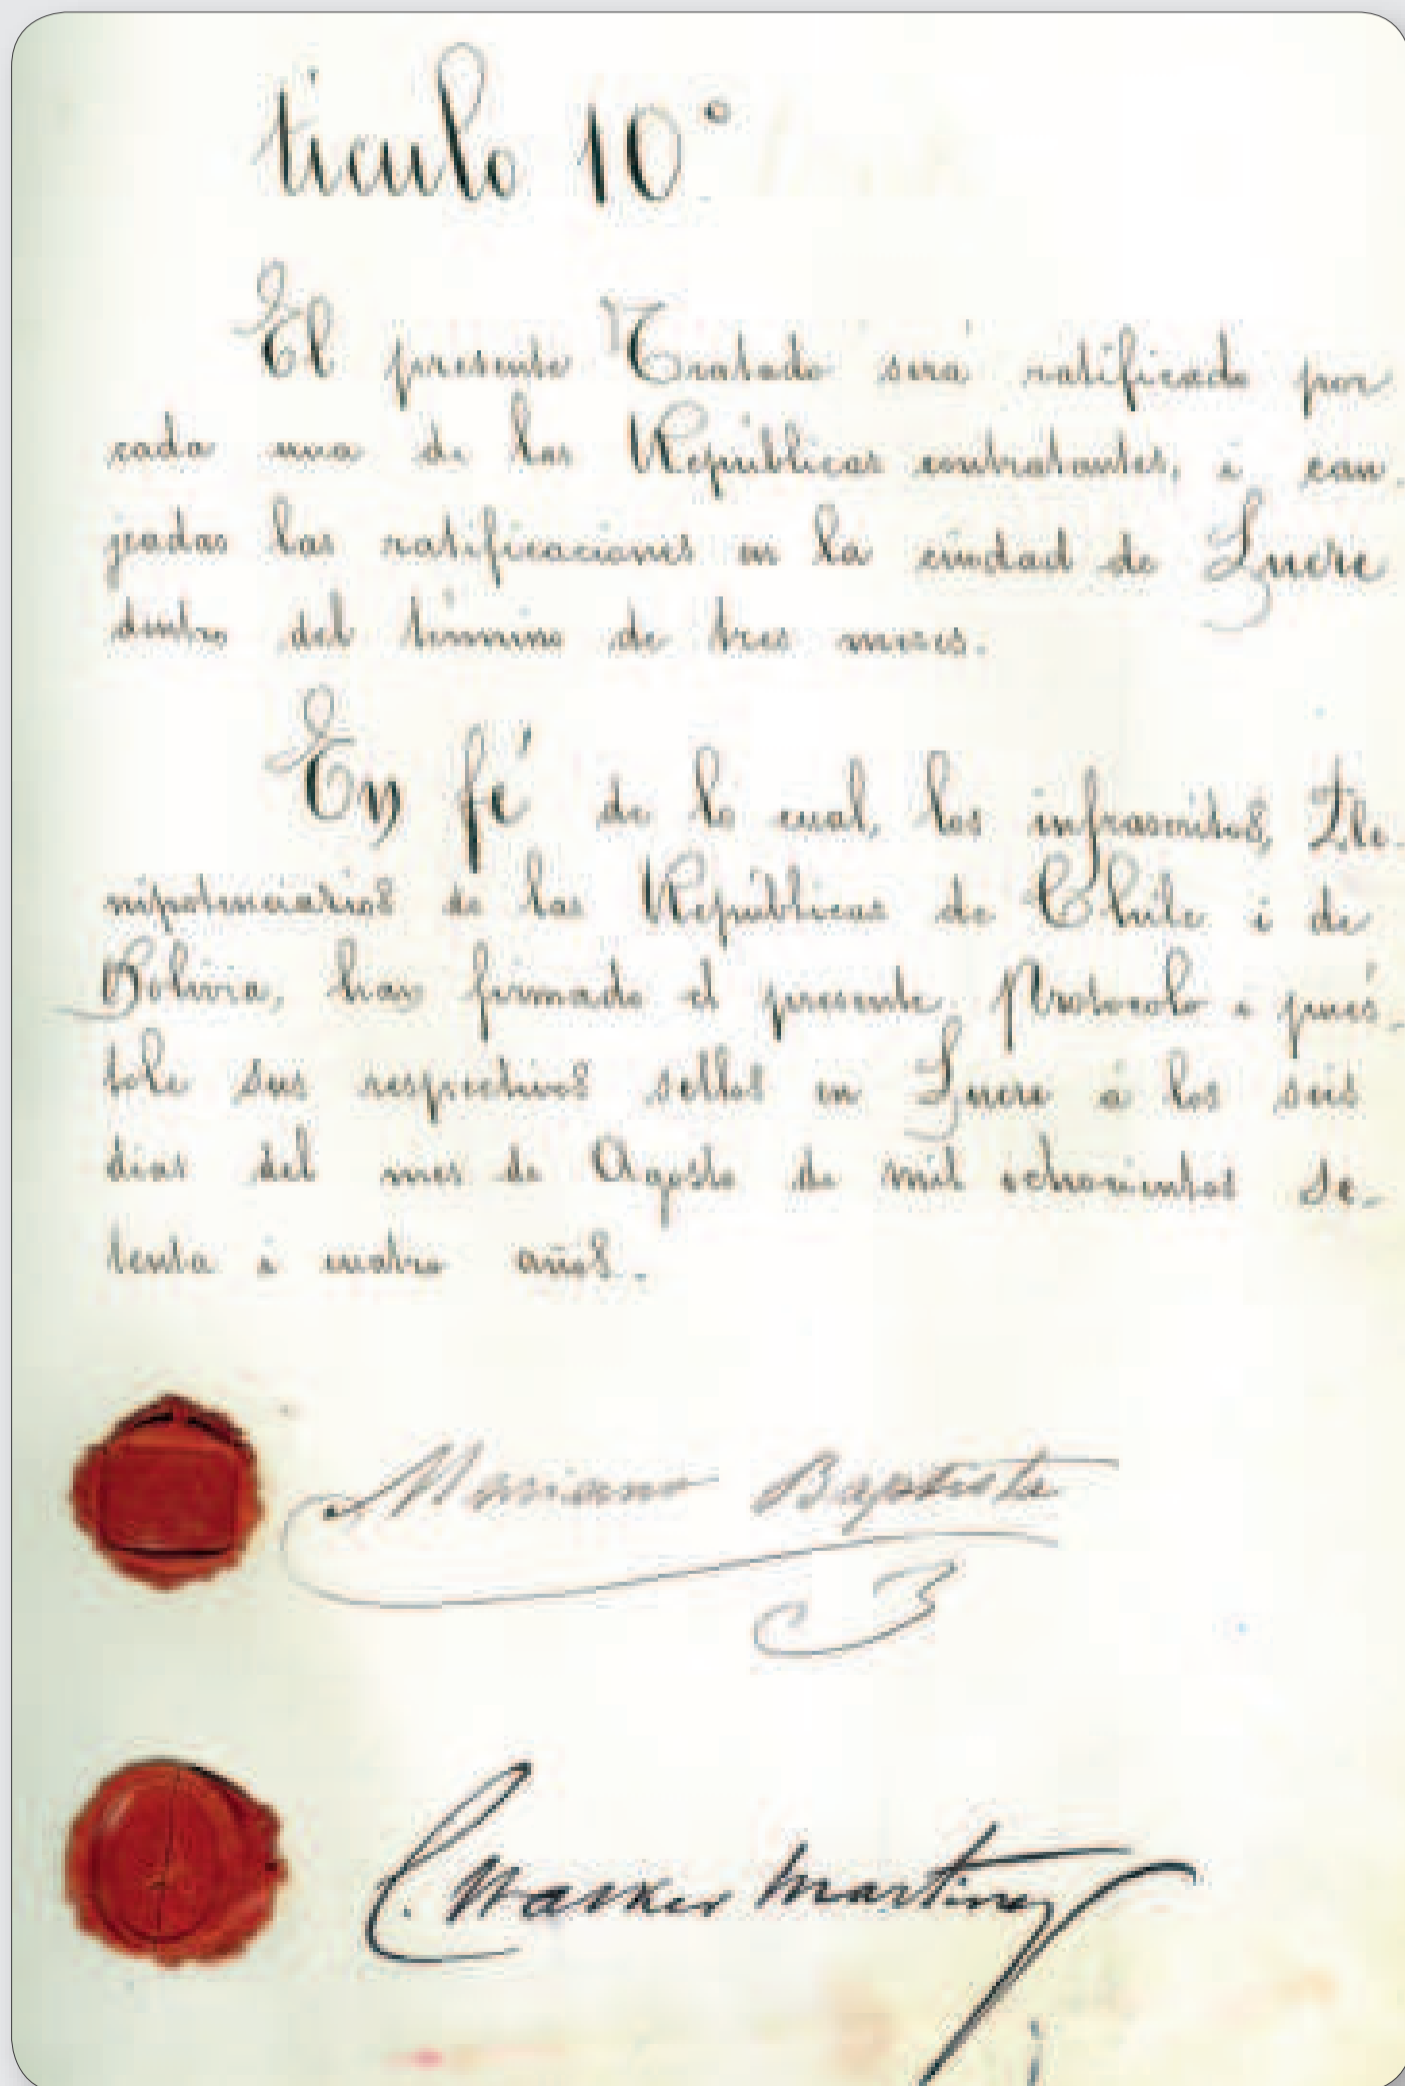 tículo 10°
El presente Tratado será ratificado por
cada una de las Repúblicas contratantes, i can-
jeadas las ratificaciones en la ciudad de Sucre
dentro del término de tres meses.
En fé de lo cual, los infrascritos, Ple-
nipotenciarios de las Repúblicas de Chile i de
Bolivia, han firmado el presente Protocolo i pués-
tole sus respectivos sellos en Sucre á los seis
dias del mes de Agosto de mil ochocientos se-
tenta i cuatro años.
Mariano Baptista
C. Walker Martinez